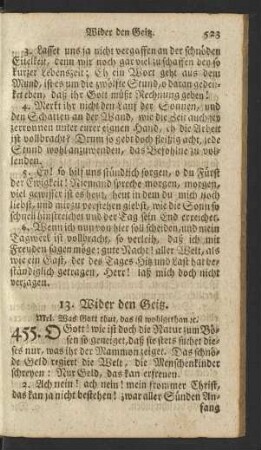 Wider den Geitz. 523
3. Lasset uns ja nicht vergaffen an der schnöden
Eitelkeit, denn wir noch gar viel zu schaffen bey so
kurzer Lebenszeit; Eh ein Wort geht aus dem
Mund, ist es um die zwölfte Stund, o daran geden-
ket eben, daß ihr Gott müßt Rechnung geben!
4. Merkt ihr nicht den Lauf der Sonnen, und
den Schatten an der Wand, wie die Zeit auch ist
zerronnen unter eurer eignen Hand, eh die Arbeit
ist vollbracht? Drum so geht doch fleißig acht, jede
Stund wohl anzuwenden, das Befohlne zu vol-
lenden.
5. Ey! so hilf uns stündlich sorgen, o du Fürst
der Ewigkeit! Niemand spreche morgen, morgen,
viel gewisser ist es heut, denn in dem du mich noch
siehst, und mir zu verstehen giebst, wie die Sonn so
schnell hinstreichet und der Tag sein End erreichet.
6. Wenn ich nun von hier soll scheiden, und mein
Tagwerk ist vollbracht, so verleih, daß ich mit
Freuden sagen möge: gute Nacht! aller Welt, als
wie ein Gast, der des Tages Hitz und Last hat be-
ständiglich getragen, Herr! laß mich doch nicht
verzagen.
13. Wider den Geitz.
Mel. Was Gott thut, das ist wohlgethan ꝛc.
455. O Gott! wie ist doch die Natur zum Bö-
sen so geneiget, daß sie stets suchet die-
ses nur, was ihr der Mammon zeiget. Das schnö-
de Geld regiert die Welt, die Menschenkinder
schreyen: Nur Geld, das kan erfreuen.
2. Ach nein! ach nein! mein frommer Christ,
das kan ja nicht bestehen! zwar aller Sünden An-
fang